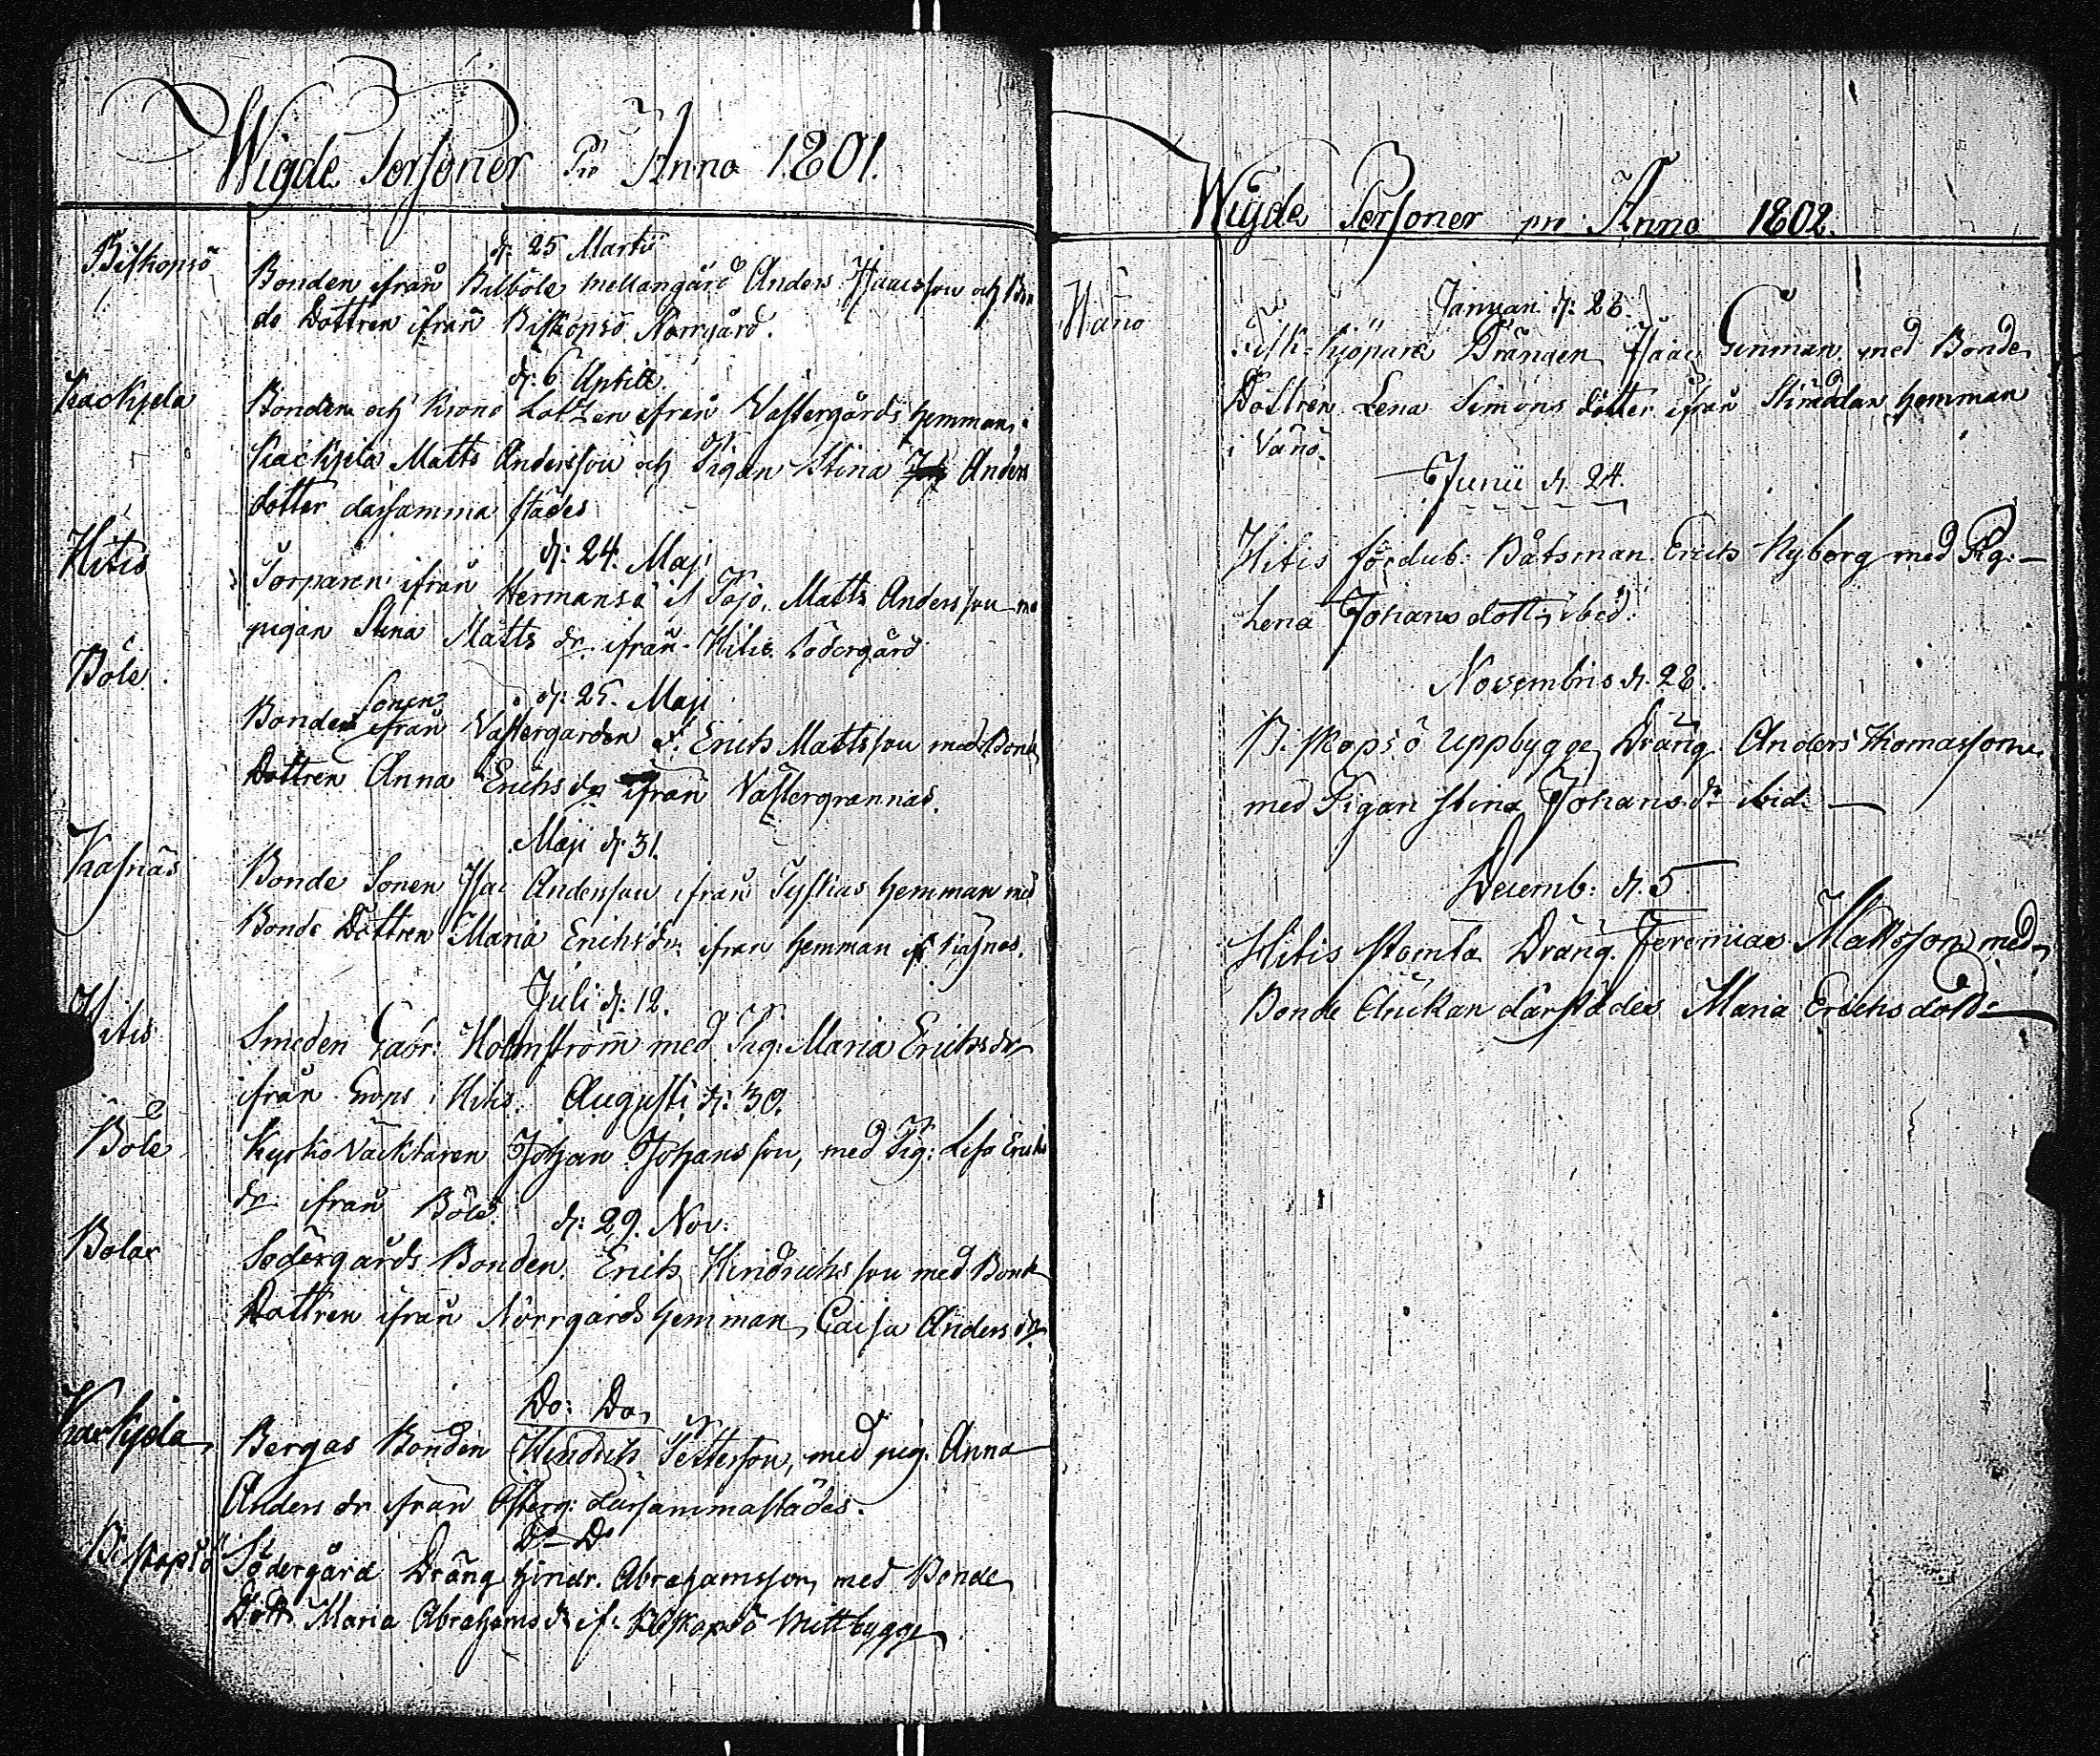 Wigde Personer Pro Anno 1801.
Biskopsö
d: 25 Martii
Bonden ifrån Bölböle Mellangård Anders Isaacsson och Bon
de Dottren ifrån Biskopsö Norrgård.
Kackjela
d: 6 Aprill.
Bonden och Krono Lotzen ifrån Wästergårds hemman i
Kackjela Matts Andersson och Pigan Stina Anders
dotter därsamma städes
Hitis
d: 24. Maji
Torparen ifrån Hermansö i Matts Andersson me
pigan Stina Matts dr ifrån Hitis Södergård
Böle
d: 25. Maji
Sonen
Bonde ifrån Västergården Erich Mattsson med Bonde
Dottren Anna Erichs dr ifrån Västergrannas.
Kasnäs
Maji d. 31.
Bonde Sonen Isac Andersson ifrån hemman med
Bonde Dottren Maria Erichs dr: ifrån hemman if Kasnäs.
Hitis
Juli d: 12.
Smeden Gabr: Holmström med Pig: Maria Erichsdr
ifrån Hitis. Augusti d: 30.
Böle
Kyrko Väcktaren Johan Johansson, med Pig: Lisa Erichs
dr ifrån Böle. d: 29. Nov:
Bolax
Södergårds Bonden. Erich Hindrichsson med Bonde
Dottren ifrån Norrgårds hemman, Caisa Anders dr
Do: Do
Kackjela
Bergas Bonden Hindrich Pettersson, med pig. Anna
Anders dr ifrån Österg: därsammastädes.
Do Do
Biskopsö
Södergård Dräng Hindr. Abrahamsson, med Bonde
Dottr. Maria Abrahams dr if. Biskopsö Mittbygge
Wigde Personer pro Anno 1802.
Januari d: 26.
Wänö
Fisk-Kjöpare Drängen Isaac Genman med Bonde
Dottren Lena Simons dotter ifrån Skräddar hemman
i Vänö.
Junii d. 24.
Hitis fördub: Båtsman Erich Nyberg med Pig:
Lena Johans dott: ibid:
Novembris d. 28.
Biskopsö Uppbygge Dräng Anders Thomasson
med Pigan Stina Johans dr ibid:
Decemb: d. 5
Hitis Stomla Dräng. Jeremias Mattsson med
Bonde Änckan därstädes Maria Erichs dott: